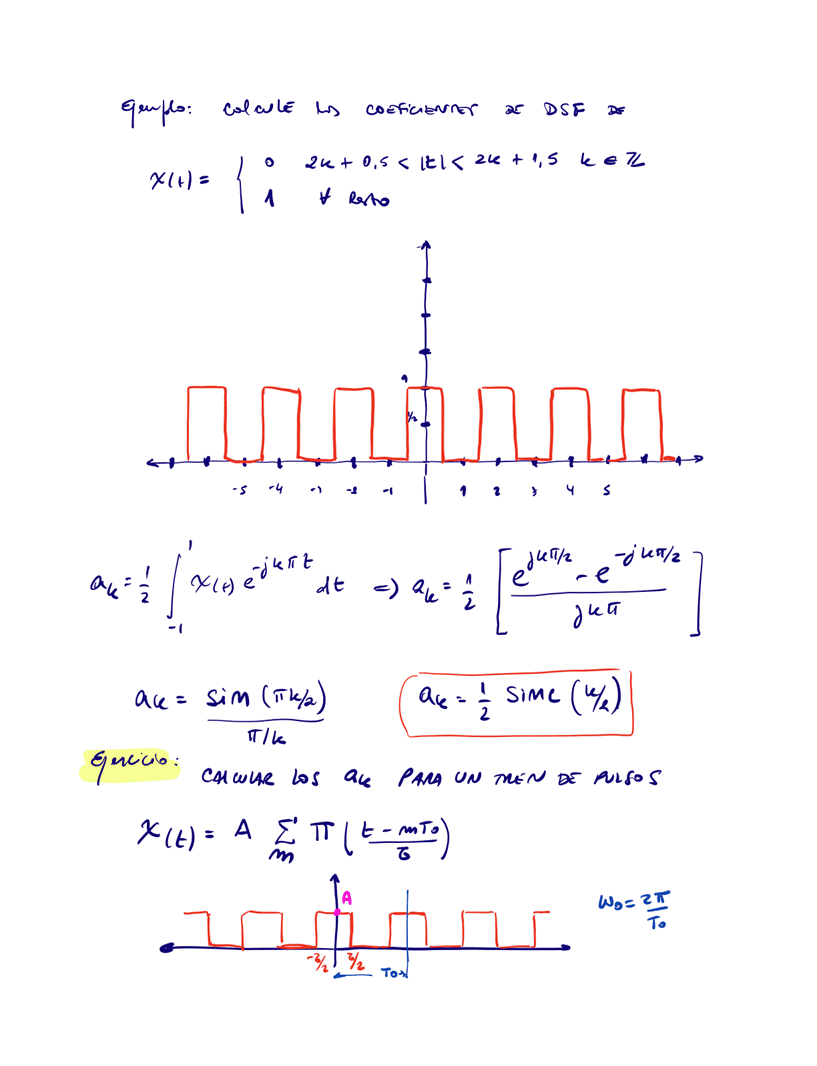 Ejemplo: CALCULE LOS COEFICIENTES DE DSF DE
x(t) = { 0 2k + 0,5 < |t| < 2k + 1,5 k ∈ ℤ
1 ∀ Resto
1
1/2
-5 -4 -3 -2 -1 1 2 3 4 5
a_k = 1/2 ∫_{-1}^{1} x(t) e^{-jkπt} dt => a_k = 1/2 [ (e^{jkπ/2} - e^{-jkπ/2}) / jkπ ]
a_k = sin(πk/2) / π/k a_k = 1/2 sinc(k/2)
Ejercicio: CALCULAR LOS a_k PARA UN TREN DE PULSOS
x(t) = A Σ_m Π( (t - mT_0) / τ )
A
ω_0 = 2π / T_0
-τ/2 τ/2
T_0